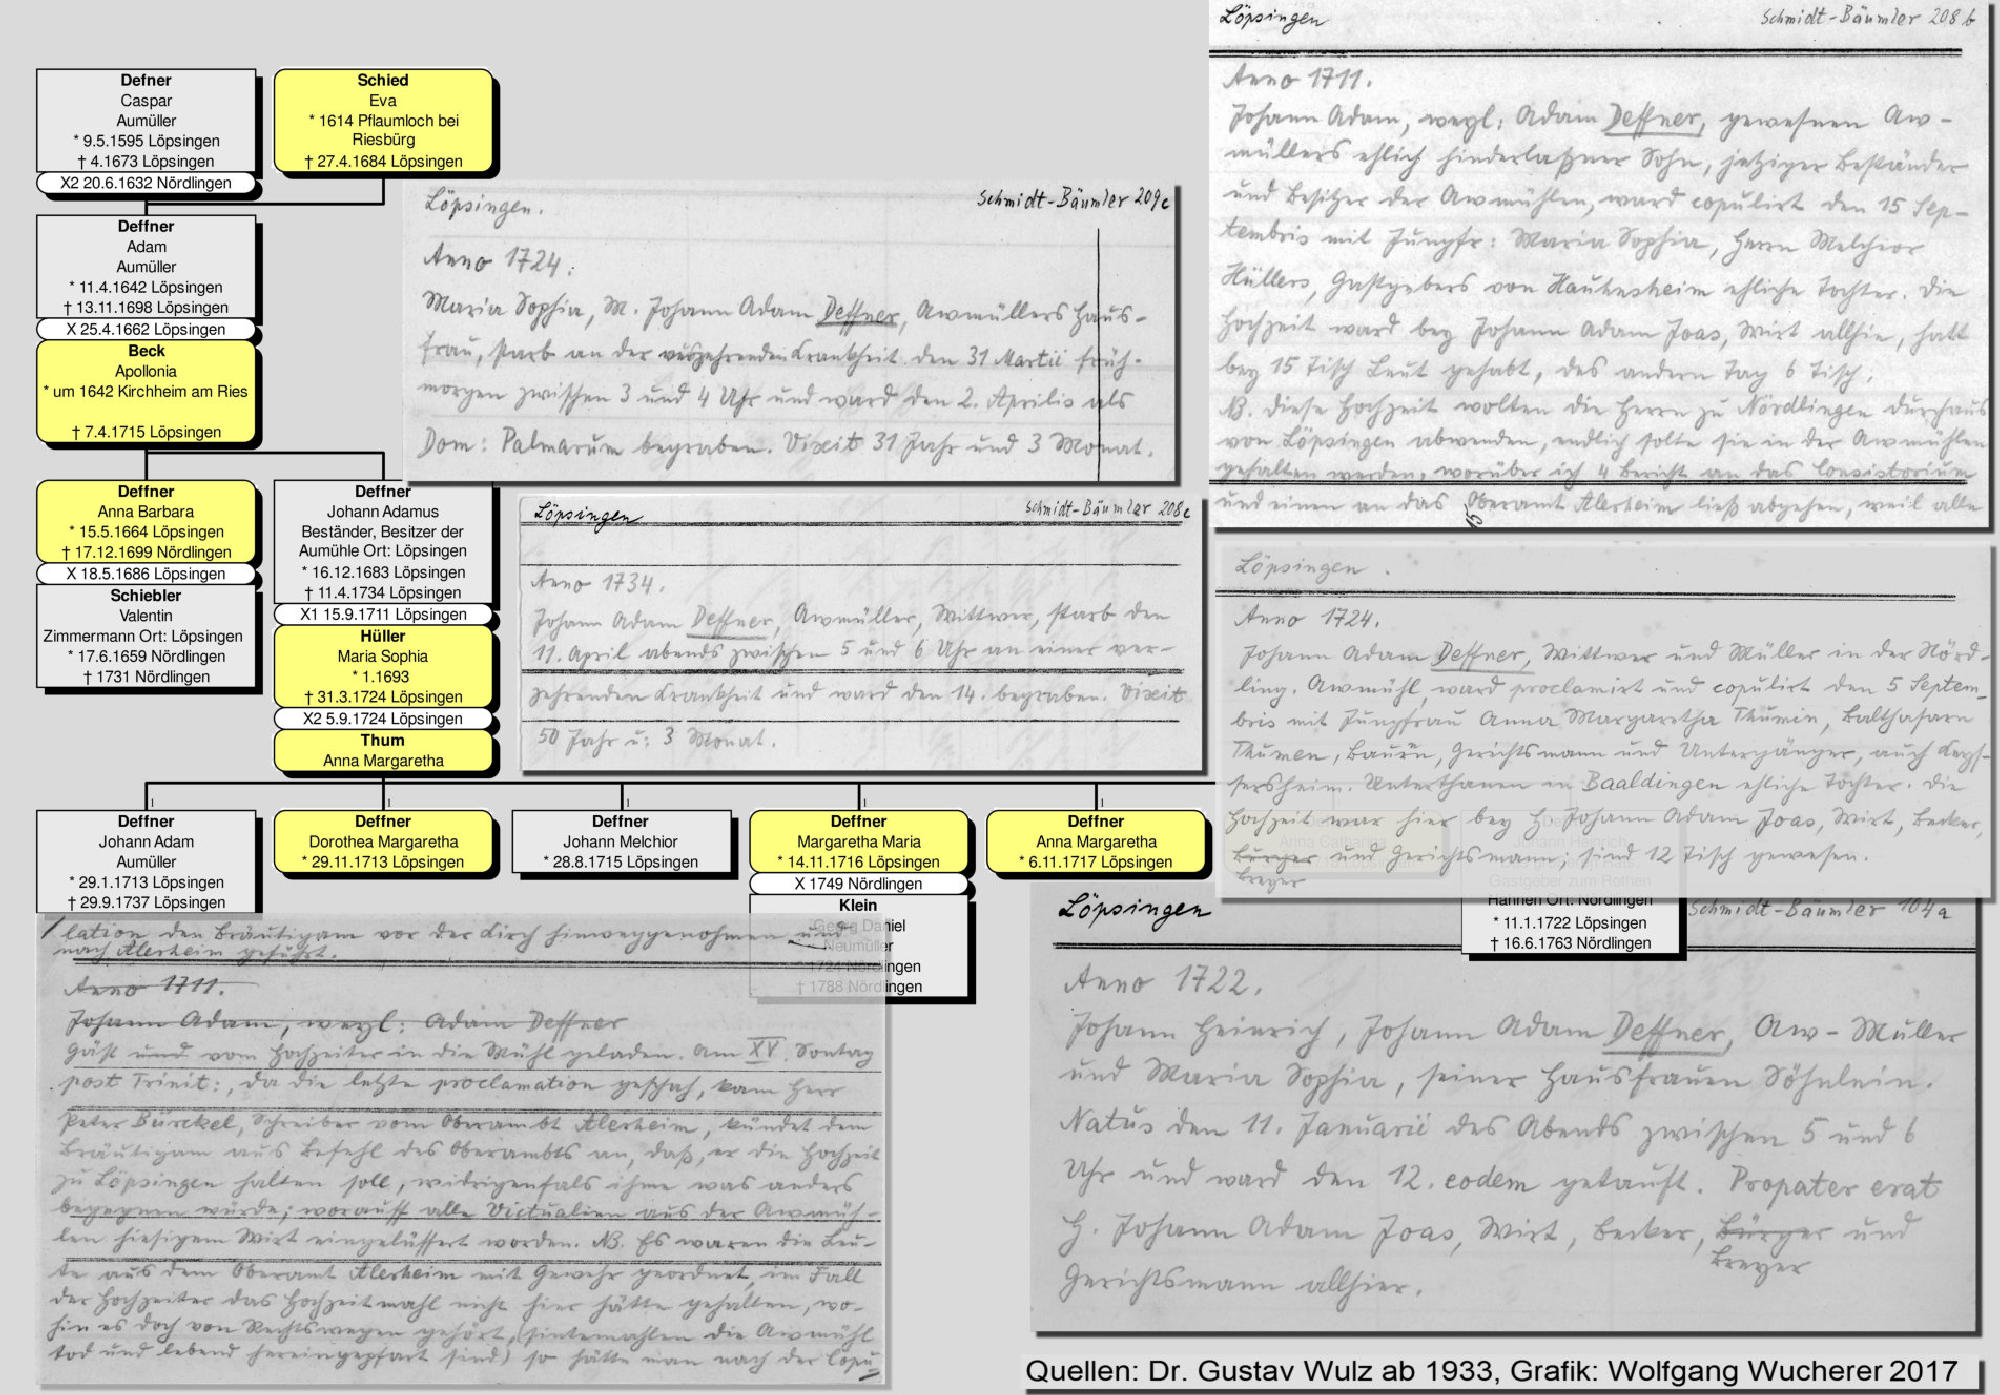 Defner
Caspar
Aumüller
* 9.5.1595 Löpsingen
† 4.1673 Löpsingen
X2 20.6.1632 Nördlingen
Schied
Eva
* 1614 Pflaumloch bei
Riesbürg
† 27.4.1684 Löpsingen
Deffner
Adam
Aumüller
* 11.4.1642 Löpsingen
† 13.11.1698 Löpsingen
X 25.4.1662 Löpsingen
Beck
Apollonia
* um 1642 Kirchheim am Ries
† 7.4.1715 Löpsingen
Deffner
Anna Barbara
* 15.5.1664 Löpsingen
† 17.12.1699 Nördlingen
X 18.5.1686 Löpsingen
Schiebler
Valentin
Zimmermann Ort: Löpsingen
* 17.6.1659 Nördlingen
† 1731 Nördlingen
Deffner
Johann Adamus
Beständer, Besitzer der
Aumühle Ort: Löpsingen
* 16.12.1683 Löpsingen
† 11.4.1734 Löpsingen
X1 15.9.1711 Löpsingen
Hüller
Maria Sophia
* 1.1693
† 31.3.1724 Löpsingen
X2 5.9.1724 Löpsingen
Thum
Anna Margaretha
Deffner
Johann Adam
Aumüller
* 29.1.1713 Löpsingen
† 29.9.1737 Löpsingen
Deffner
Dorothea Margaretha
* 29.11.1713 Löpsingen
Deffner
Johann Melchior
* 28.8.1715 Löpsingen
Deffner
Margaretha Maria
* 14.11.1716 Löpsingen
X 1749 Nördlingen
Klein
Georg Daniel
Neumüller
* 1724 Nördlingen
† 1788 Nördlingen
Deffner
Anna Margaretha
* 6.11.1717 Löpsingen
Anna Catharina
Johann Heinrich
Gastgeber zum Rothen
Hahnen Ort: Nördlingen
* 11.1.1722 Löpsingen
† 16.6.1763 Nördlingen
Löpsingen. Schmidt-Bäumler 209c
Anno 1724.
Maria Sophia, M. Johann Adam Deffner, Awmüllers Haus-
frau, starb an der verzehrenden Krankheit den 31 Martii früh-
morgen zwischen 3 und 4 Uhr und ward den 2. Aprilis als
Dom: Palmarum begraben. Vixit 31 Jahr und 3 Monat.
Löpsingen Schmidt-Bäumler 208c
Anno 1734.
Johann Adam Deffner, Awmüller, Wittwer, starb den
11. April abends zwischen 5 und 6 Uhr an einer ver-
zehrenden Krankheit und ward den 14. begraben. Vixit
50 Jahr u: 3 Monat.
Löpsingen Schmidt-Bäumler 208b
Anno 1711.
Johann Adam, weyl: Adam Deffner, gewesnen Aw-
müllers ehlich hinderlaßner Sohn, jetziger Beständer
und Besitzer der Awmühlen, ward copulirt den 15 Sep-
tembris mit Jungfr: Maria Sophia, Herrn Melchior
Hüllers, Gastgebers von Hautnsheim ehliche Tochter. Die
Hochzeit ward bey Johann Adam Joas, Wirt allhie, hatt
bey 15 Tisch Leut gehabt, des andern Tag 6 Tisch.
NB. diese Hochzeit wolten die Herrn zu Nördlingen durchaus
von Löpsingen abwenden, endlich solte sie in der Awmühlen
gehalten werden, worüber ich 4 Bericht an das Consistorium
und einen an das Oberamt Alerheim ließ abgehen, weil alle
Löpsingen.
Anno 1724.
Johann Adam Deffner, Wittwer und Müller in der Nörd-
ling. Awmühl, ward proclamirt und copulirt den 5 Septem-
bris mit Jungfrau Anna Margaretha Thumin, Balthasarn
Thumen, Baurn, Gerichtsmann und Untergänger, auch Kays-
sersheim. Unterthanen in Baaldingen ehliche Tochter. Die
Hochzeit war hier bey H. Johann Adam Joas, Wirt, Becker,
Bürger und Gerichtsmann; sind 12 Tisch gewesen.
Breyer
lation den Bräutigam vor der Kirch hinweggenohmen und
nach Alerheim geführt.
Anno 1711.
Johann Adam, weyl: Adam Deffner
Gäst und vom Hochzeiter in die Mühl geladen. Am XV. Sontag
post Trinit:, da die letzte proclamation geschah, kam Herr
Peter Bürckel, Schreiber vom Oberambt Alerheim, kündet dem
Bräutigam aus Befehl des Oberambts an, daß, er die Hochzeit
zu Löpsingen halten soll, widrigenfals ihme was anders
begegnen würde; worauff alle Victualien aus der Awmüh-
len hiesigem Wirt eingelüffert worden. NB. Es waren die Leu-
te aus dem Oberamt Alerheim mit Gewehr geordnet, im Fall
der Hochzeiter das Hochzeitmahl nicht hier hätte gehalten, wo-
hin es doch von Rechtswegen gehört, (sintemahlen die Awmühl
tod und lebend hereingepfart sind) so hätte man nach der Copu-
Löpsingen Schmidt-Bäumler 104a
Anno 1722.
Johann Heinrich, Johann Adam Deffner, Aw-Müller
und Maria Sophia, seiner Hausfrauen Söhnlein.
Natus den 11. Januarii des Abends zwischen 5 und 6
Uhr und ward den 12. eodem getauft. Propater erat
H. Johann Adam Joas, Wirt, Becker, Bürger und
Breyer
Gerichtsmann allhier.
Quellen: Dr. Gustav Wulz ab 1933, Grafik: Wolfgang Wucherer 2017